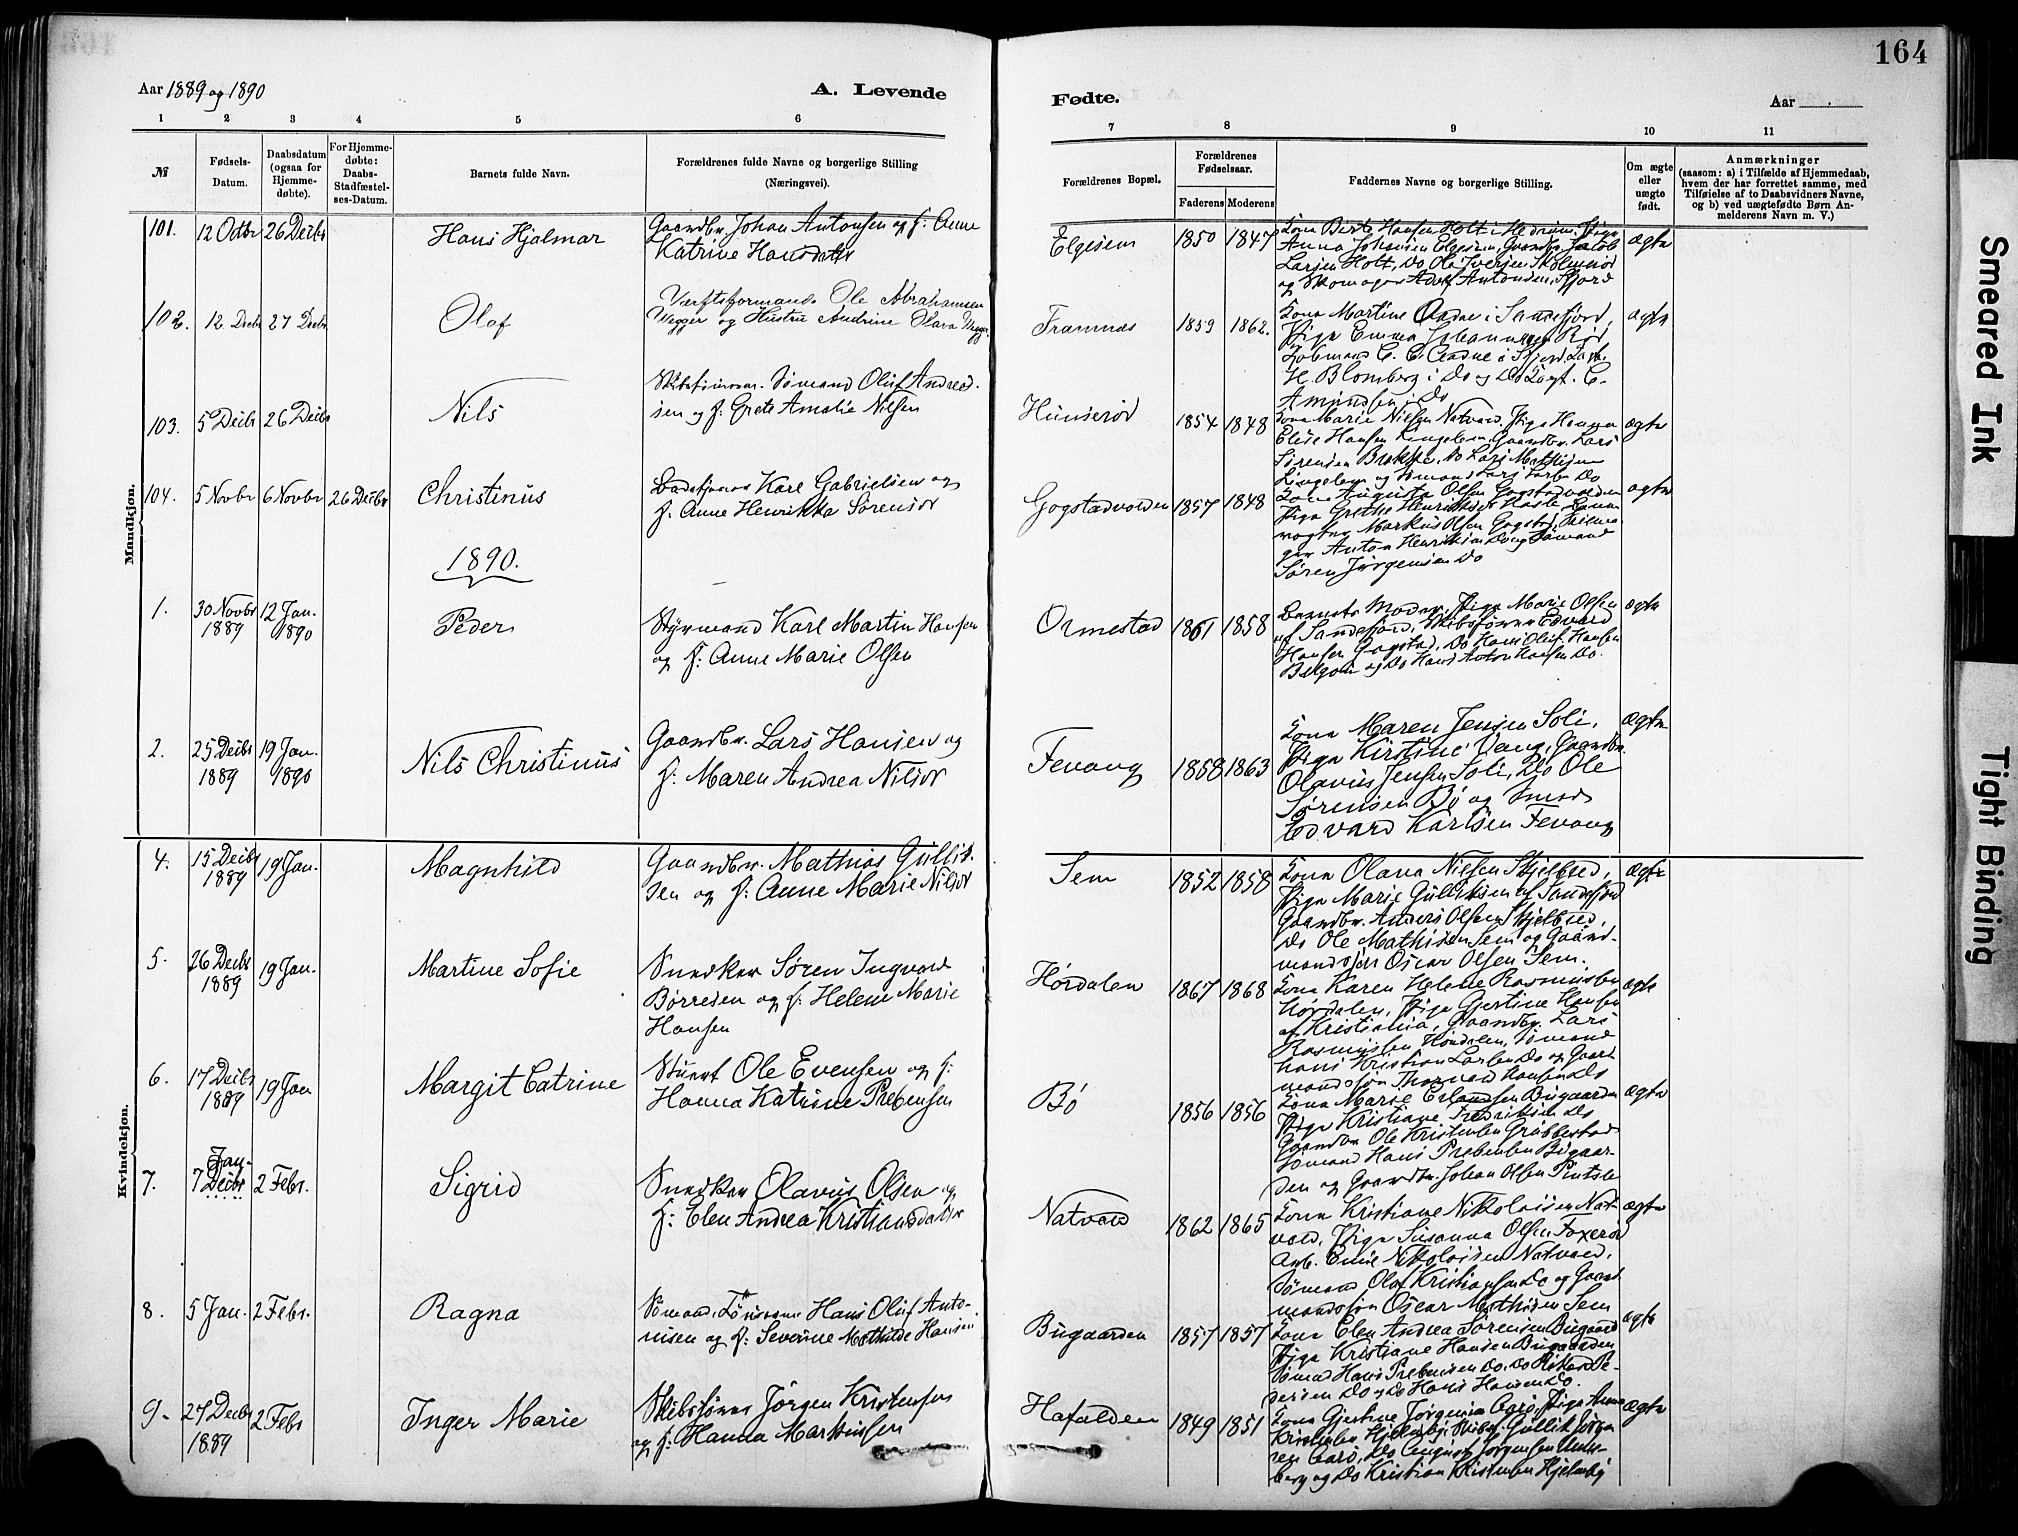 164
Aar 1889 og 1890
A. Levende
Fødte.
Aar
1 2 3 4 5 6 7 8 9 10 11
№
Fødsels-Datum.
Daabsdatum (ogsaa for Hjemme-døbte).
For Hjemme-døbte: Daabs-Stadfæstel-ses-Datum.
Barnets fulde Navn.
Forældrenes fulde Navne og borgerlige Stilling (Næringsvei).
Forældrenes Bopæl.
Forældrenes Fødselsaar.
Faderens Moderens
Faddernes Navne og borgerlige Stilling.
Om ægte eller uægte født.
Anmærkninger
(saasom: a) i Tilfælde af Hjemmedaab,
hvem der har forrettet samme, med
Tilføielse af to Daabsvidners Navne,
og b) ved uægtefødte Børn An-
melderens Navn m. V.)
Mandkjøn.
101. 12 Octbr 26 Decbr Hans Hjalmar
Gaardbr. Johan Antonsen og h: Anne
Katrine Hansdatter
Elgesem 1850 1847
Kona Berte Hansen Holt i Hedrum, Pige
Anna Johansen Elgesem, Gaardbr. Jakob
Larsen Holt, Do Ole Iversen
og Skomager Adolf Antonsen, Sfjord
ægte
102. 12 Decbr 27 Decbr Olaf
Værftsformand Ole Abrahamsen
Vegger og Hustru Andrine Olava Vegger
Framnæs 1859 1862.
Kona Martine Aadne i Sandefjord,
Pige Emma Johannesen Rød,
Kobmand C. C. Aadne i Sfjord
H. Blomberg i Do og Do C.
Amundsen i Do
ægte
103. 5 Decbr 26 Decbr Nils
Sømand Oluf Andreas-
sen og h: Grete Amalie Nilsen
Hunserød 1854 1848
Kona Marie Nielsen Natvad, Pige Hanna
Elise Hansen Lingelem, Gaardbr. Lars
Sørensen Brække, Do Lars Mathisen
Lingelem og Sømand Lars Do
ægte
104. 5 Novbr 6 Novbr 26 Decbr Christinus
Karl Gabrielsen og
h: Anne Henrikke Sørensdr
Gogstadvolden 1857 1848
Kona Augusta Olsen Gogstadvolden
Pige Grethe Henriksen
Markus Olsen Gogstad,
Anton Henriksen Do og Sømand
Søren Jørgensen Do
ægte
1890.
1. 30 Novbr 1889 12 Jan. 1890 Peder
Styrmand Karl Martin Hansen
og h: Anne Marie Olsen
Ormestad 1861 1858
Barnets Moder, Pige Marie Olsen
af Sandefjord, Skibsfører Edvard
Hansen Gogstad, Do Hans Oluf Hansen
og Do Hans Anton Hansen Do.
ægte
2. 25 Decbr 1889 19 Jan. 1890 Nils Christinus
Gaardbr. Lars Hansen og
h: Maren Andrea Nilsdr
Fevang 1858 1863
Kona Maren Jensen Soli,
Pige Kirstine Vang, Gaardbr.
Olavus Jensen Soli, Do Ole
Sørensen Bø og Smed
Edvard Karlsen Fevang
ægte
Kvindekjøn.
4. 15 Decbr 1889 19 Jan. Magnhild
Gaardbr. Mathias Gullik-
sen og h: Anne Marie Nilsdr
Sem 1852 1858
Kona Olava Nielsen Skjelbred,
Pige Marie Gulliksen af Sandefjord
Gaardbr. Anders Olsen Skjelbred,
Do Ole Mathisen Sem og Gaard-
mandssøn Oscar Olsen Sem.
ægte
5. 26 Decbr 1889 19 Jan. Martine Sofie
Snedker Søren Ingvard
Børresen og h: Helene Marie
Hansen
Hørdalen 1867 1868
Kona Karen Helene Rasmussen
Hørdalen, Pige Gjertine Hansen
af Kristiania, Gaardbr. Lars
Rasmussen Hørdalen, Sømand
Hans Kristian Larsen Do og Gaard
mandssøn Thorvald Hansen Do
ægte
6. 17 Decbr 1889 19 Jan Margit Catrine
Stuert Ole Evensen og h:
Hanna Katrine Prebensen
Bø 1856 1856
Kona Marie Erlandsen Bugaarden
Pige Kristiane Fredriksen Do
Gaardbr Ole Kristensen Grubbestad
Sømand Hans Prebensen Bugaar-
den og Gaardbr. Johan Olsen Pindsle
ægte
7. 7 Jan. Decbr 2 Febr. Sigrid
Snedker Olavus Olsen og
h: Elen Andrea Kristiansdatter
Natvad 1862 1865
Kona Kristiane Nikolaisen Nat-
vad, Pige Susanna Olsen Foxerød
Arb. Emil Nikolaisen Natvad,
Sømand Olaf Kristiansen Do og Gaard
mandssøn Oscar Mathisen Sem
ægte
8. 5 Jan. 2 Febr. Ragna
Sømand Hans Oluf Anto-
nisen og h: Severine Mathilde Hansen
Bugaarden 1857 1857
Kona Elen Andrea Sørensen Bugaard
Pige Kristiane Hansen Bugaarden
Sømand Hans Prebensen Do, Do Pe-
dersen Do og Do Hans Hansen Do.
ægte
9. 27 Decbr 1889 2 Febr Inger Marie
Skibsfører Jørgen Kristensen
og h: Hanna Markussen
Hafalden 1849 1851
Kona Gjertine Jørgensen Aarø, Pige Anna
Kristensen Hjelmby, Skibsf. Gullik Jørgen-
sen Aarø, Do August Jørgensen
berg og Do Kristian Kristensen Hjelmby
ægte
Smeared Ink
Tight Binding